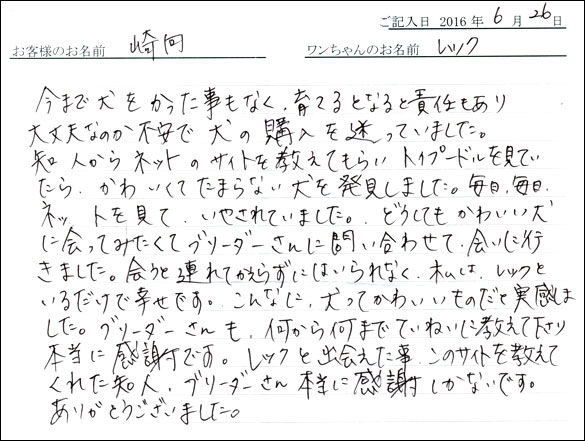 ご記入日 2016年 6月 26日
お客様のお名前 崎向 ワンちゃんのお名前 レック
今まで犬をかった事もなく、育てるとなると責任もあり
大丈夫なのか不安で犬の購入を迷っていました。
知人からネットのサイトを教えてもらいトイプードルを見てい
たら、かわいくてたまらない犬を発見しました。毎日、毎日、
ネットを見て、いやされていました。どうしてもかわいい犬
に会ってみたくてブリーダーさんに問い合わせて、会いに行
きました。会うと連れてかえらずにはいられなく、私は、レックと
いるだけで幸せです。こんなに、犬ってかわいいものだと実感しま
した。ブリーダーさんも、何から何までていねいに教えて下さり
本当に感謝です。レックと出会えた事、このサイトを教えて
くれた知人、ブリーダーさん本当に感謝しかないです。
ありがとうございました。